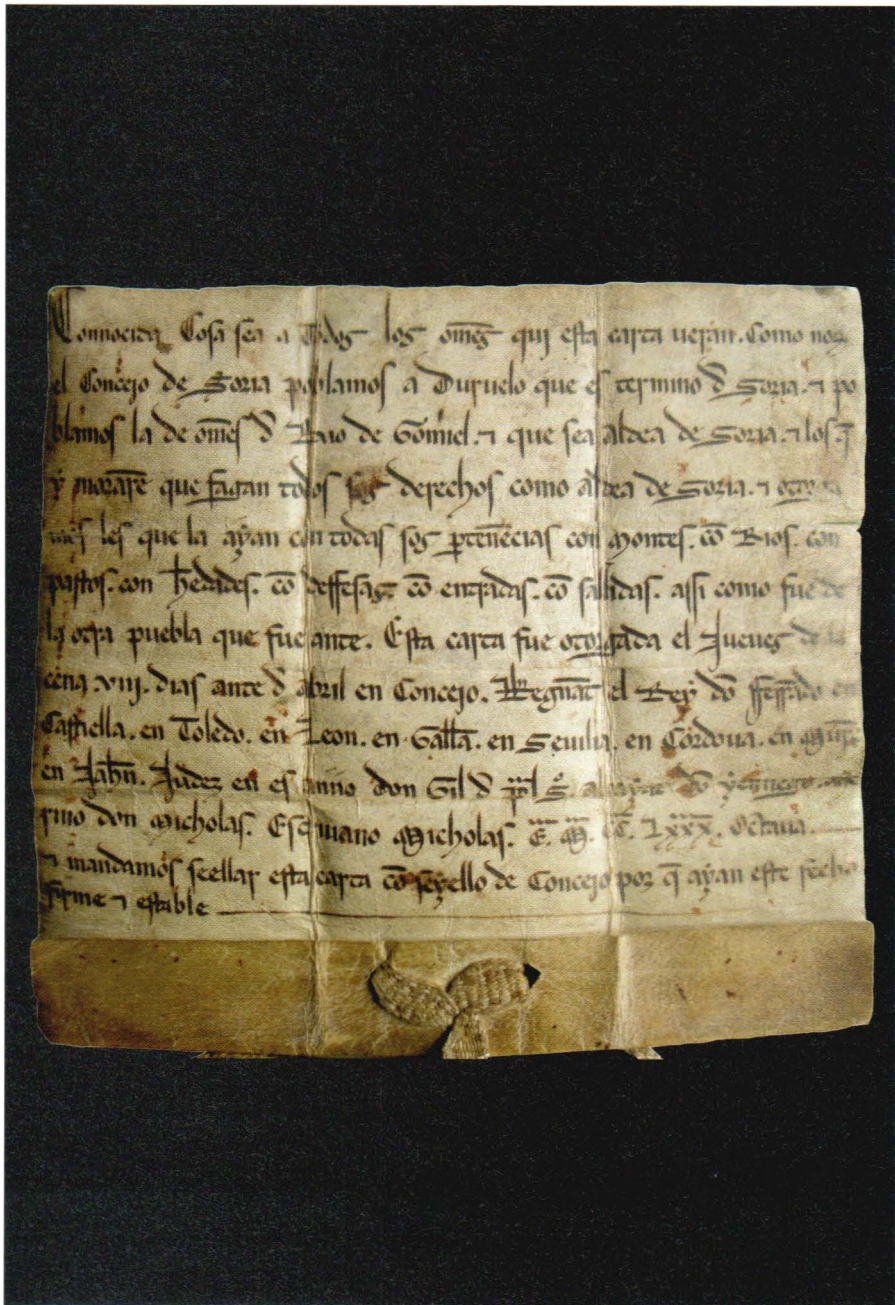 Connocida Cosa sea a Todos los om̄es qui esta carta ueran. Como nos
el Concejo de Soria poblamos a Duruelo que es termino đ Soria. ⁊ po
blamos la de om̄es đ Rio de Gomiel. ⁊ que sea aldea de Soria. ⁊ los q̄
y morarē que fagan todos sos derechos como aldea de Soria. ⁊ otorga
mos les que la ayan con todas sos ꝑtenēcias con Montes. cō Rios. con
pastos. con hedades. cō deffesas ⁊ cō entradas. cō salidas. assi como fue de
la otra puebla que fue ante. Esta carta fue otorgada el Jueues de la
cena .viij. dias ante đ abril en Concejo. Regnāt el Rey dō fferrādo en
Castiella. en Toledo. en Leon. en Gallā. en Seuilia. en Cordoua. en Mur̄
en Jahn̄. Judez en es anno don Gil đ
rino don Nicholas. Escriuano Nicholas. Ē. M̄. CC̄. Lxxx. Octaua.
⁊ mandamos seellar esta carta cō seyello de Concejo por q̄ ayan este fecho
firme ⁊ estable